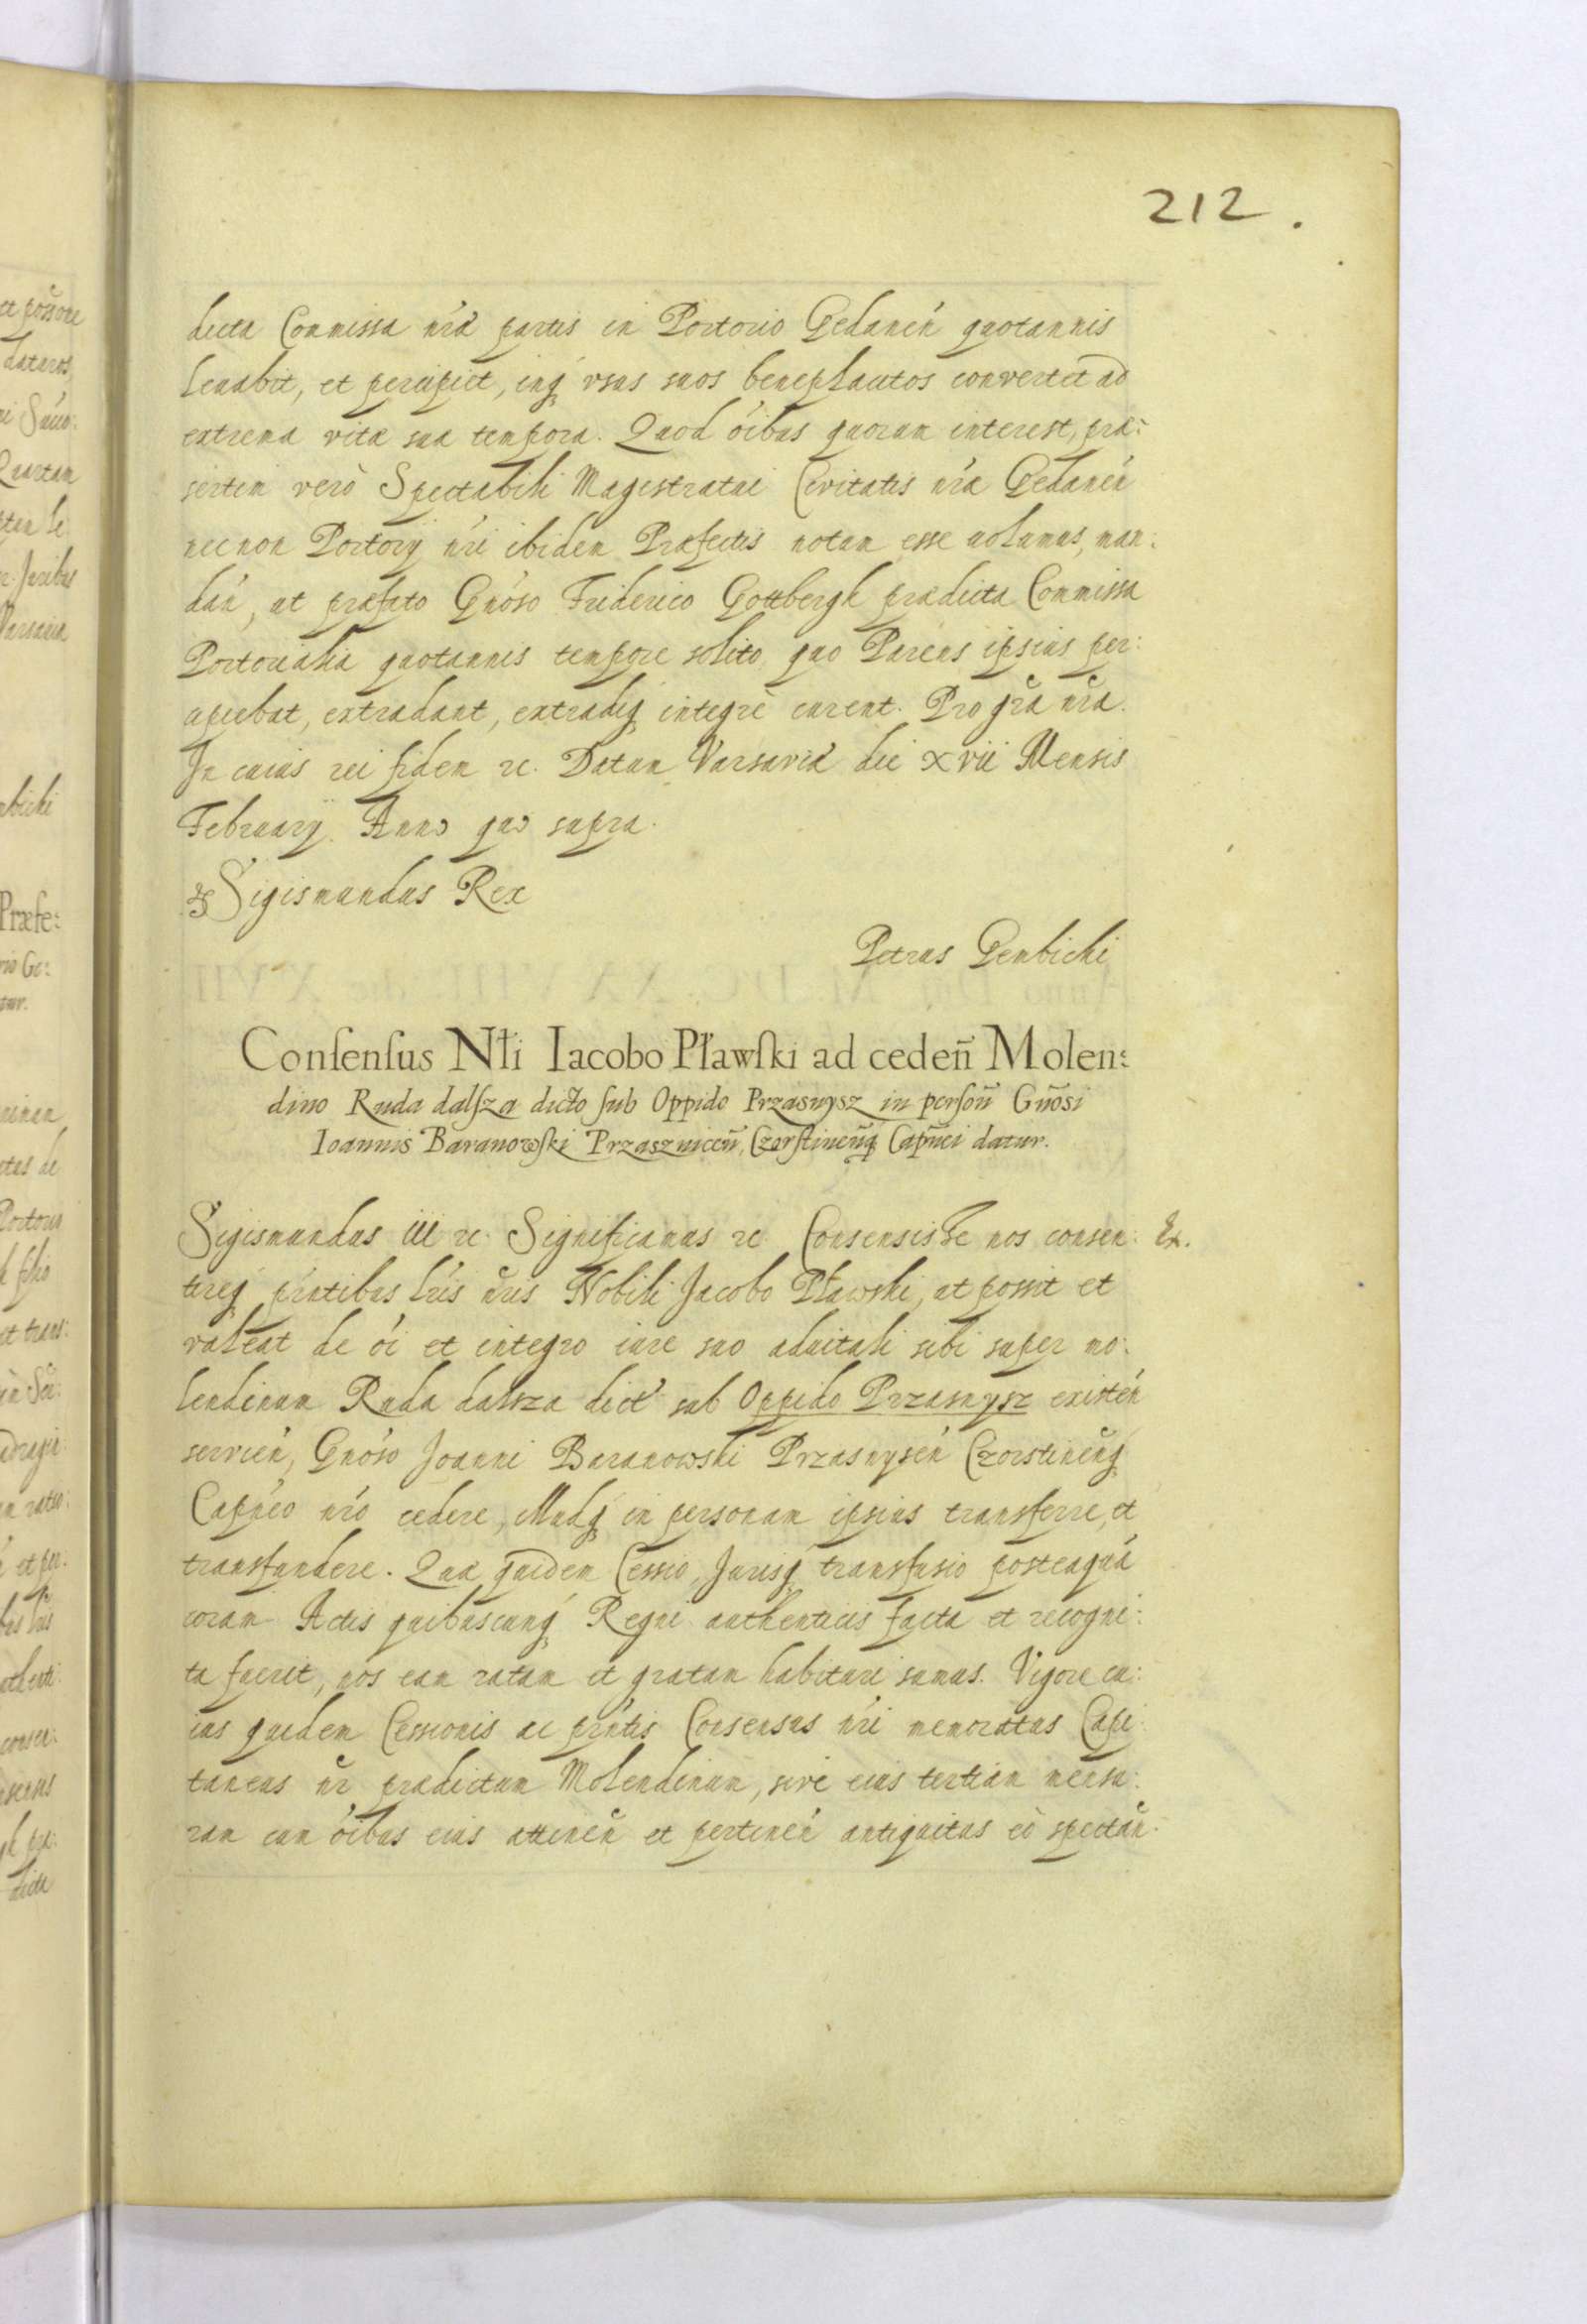 212.
dicta Commissa nrae partis in Portorio Gedanen quotannis
leuabit, et percipiet, inq vsus suos beneplacitos convertet ad
extrema vitae suae tempora. Quod oibus quorum interest, prae:
sertim verò Spectabili Magistratui Civitatis nrae Gedanen
necnon Portorij nri ibidem Praefectis notum esse uolumus, man:
dan, ut praefato Gnoso Friderico Gottbergk praedicta Commissa
Portorialia quotannis tempore solito quo Parens ipsius per:
cipiebat, extradant, extradiq integrè curent. Pro gra nra.
In cuius rei fidem &c. Datum Varsaviae die xvii Mensis
February Anno quo supra.
Sigismundus Rex
Petrus Gembicki
Consensus Nłi Iacobo Pławski ad ceden Molen:
dino Ruda dalsza dicto sub Oppido Przasnysz in person Gnosi
Ioannis Baranowski Przasznicen, Czorstinenq Capnei datur.
Sigismundus iii &c. Significamus &c. Consensisse nos consen: Ex.
tireq prntibus lris nris Nobili Jacobo Pławski, ut possit et
valeat de oi et integro iure suo aduitali sibi super mo:
lendinum Ruda dalsza dict sub Oppido Przasnysz existen
servien, Gnoso Joanni Baranowski Przasnysen Czorstinenq
Capneo nro cedere, illudq in personam ipsius transferre, et
transfundere. Quae quidem Cessio, Jurisq transfusio posteaquā
coram Actis quibuscunq Regni authenticis facta et recogni:
ta fuerit, nos eam ratam et gratam habituri sumus. Vigore cu:
ius quidem Cessionis ac prntis Consensus nri memoratus Capi:
taneus nr praedictum Molendinum, sive eius tertiam mensu:
ram cum oibus eius attinen et pertinen antiquitus eò spectan.